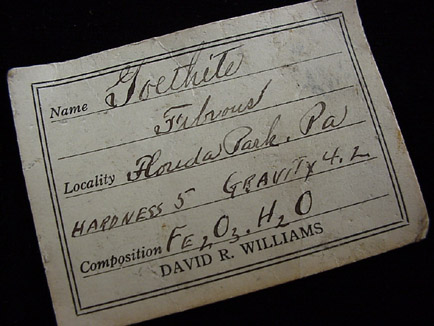 Name Goethite
Fibrous
Locality Florida Park, Pa
HARDNESS 5 GRAVITY 4.2
Composition Fe2O3.H2O
DAVID R. WILLIAMS